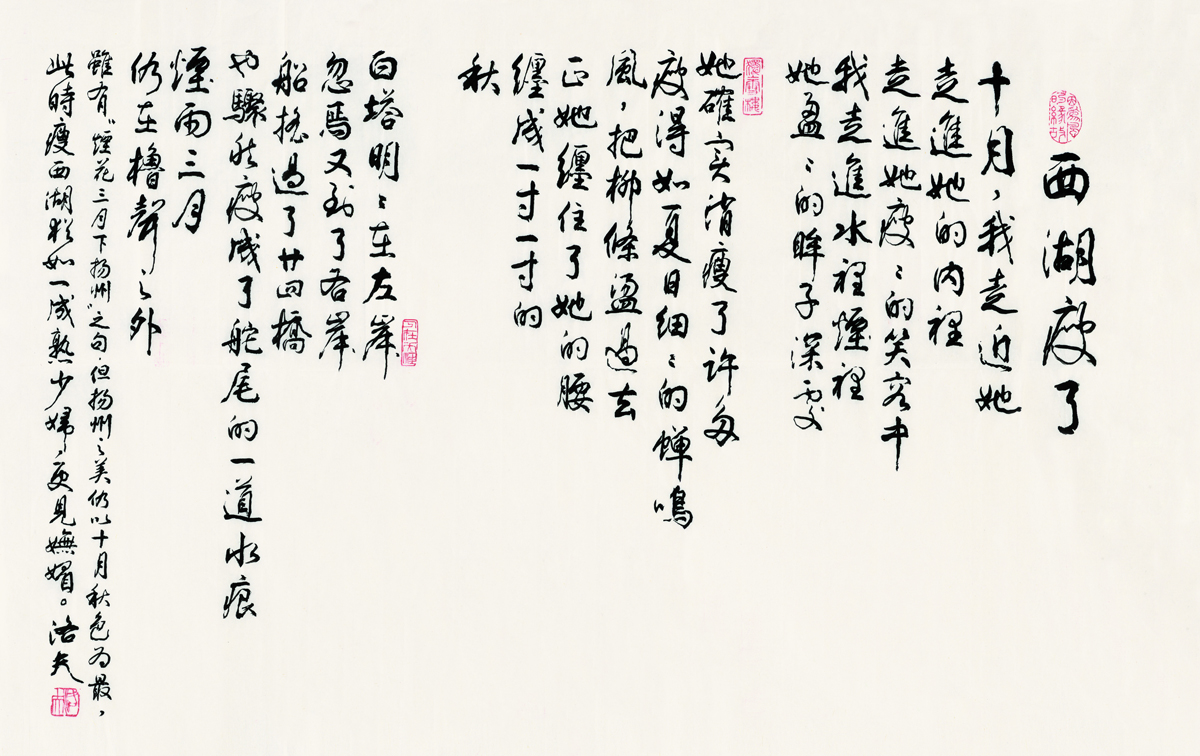 西湖瘦了
十月，我走近她
走進她的內裡
走進她瘦瘦的笑容中
我走進水裡煙裡
她盈盈的眸子深處
她確實消瘦了許多
瘦得如夏日細細的蟬鳴
風，把柳條盪過去
正她纏住了她的腰
纏成一寸一寸的
秋
白塔明明在左岸
忽焉又到了右岸
船搖過了廿四橋
也驟然瘦成了舵尾的一道水痕
煙雨三月
仍在櫓聲之外
雖有“煙花三月下揚州”之句，但揚州之美仍以十月秋色為最，
此時瘦西湖猶如一成熟少婦，更見嫵媚。洛夫